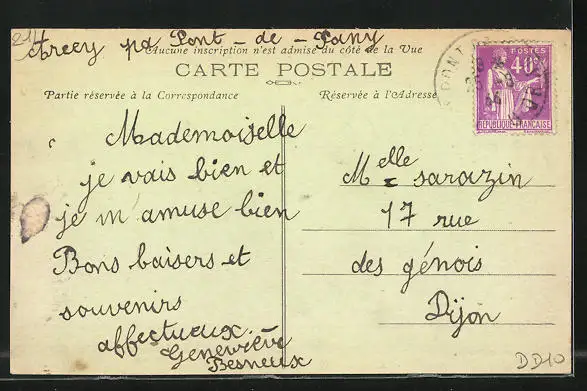 Arcey pa Pont-de-Pany
Aucune inscription n'est admise du côté de la Vue
CARTE POSTALE
Partie réservée à la Correspondance
Réservée à l'Adresse
POSTES
40c
RÉPUBLIQUE FRANÇAISE
Mademoiselle
je vais bien et
je m'amuse bien
Bons baisers et
souvenirs
affectueux.
Geneviève
Besneux
Melle sarazin
17 rue
des génois
Dijon
DD10